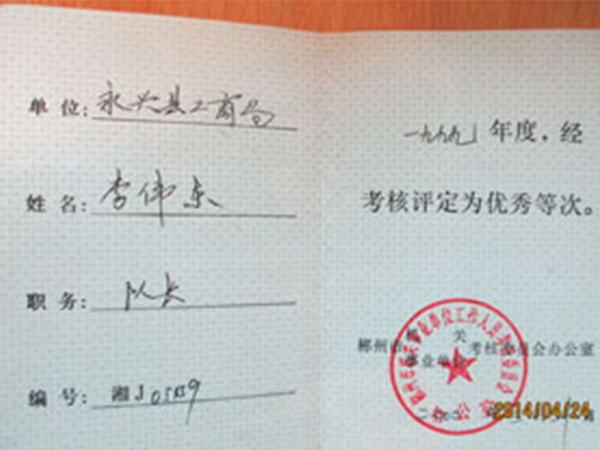 单位：永兴县工商局
姓名：李伟东
职务：队长
编号：湘J
一九九九年度，经
考核评定为优秀等次。
郴州市机关
事业单位
考核委员会办公室
2014/04/24